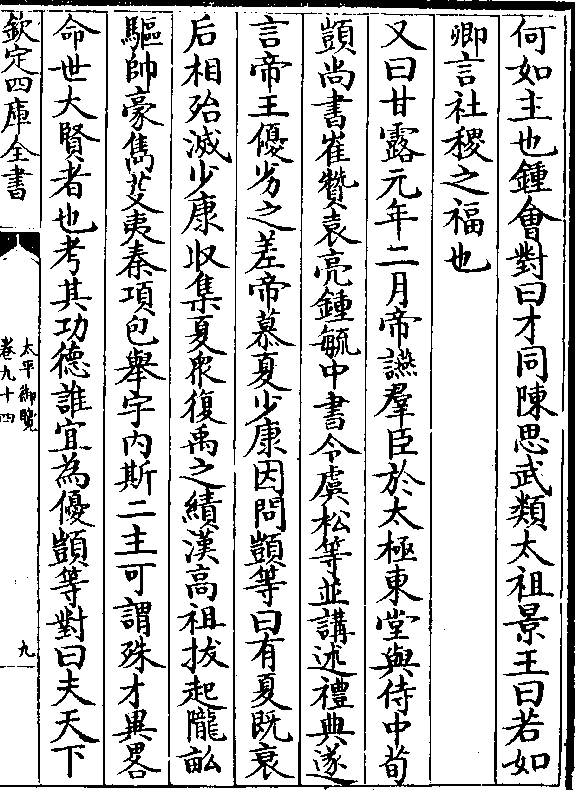 何如主也鍾會對曰才同陳思武類太祖景王曰若如
卿言社稷之福也
又曰甘露元年二月帝讌羣臣於太極東堂與侍中荀
顗尚書崔贊袁亮鍾毓中書令虞松等並講述禮典遂
言帝王優劣之差帝慕夏少康因問顗等曰有夏既衰
后相殆滅少康收集夏衆復禹之績漢高祖拔起隴畝
驅帥豪雋芟夷秦項包舉宇内斯二主可謂殊才異畧
命世大賢者也考其功德誰宜為優顗等對曰夫天下
欽定四庫全書
太平御覽
卷九十四
九